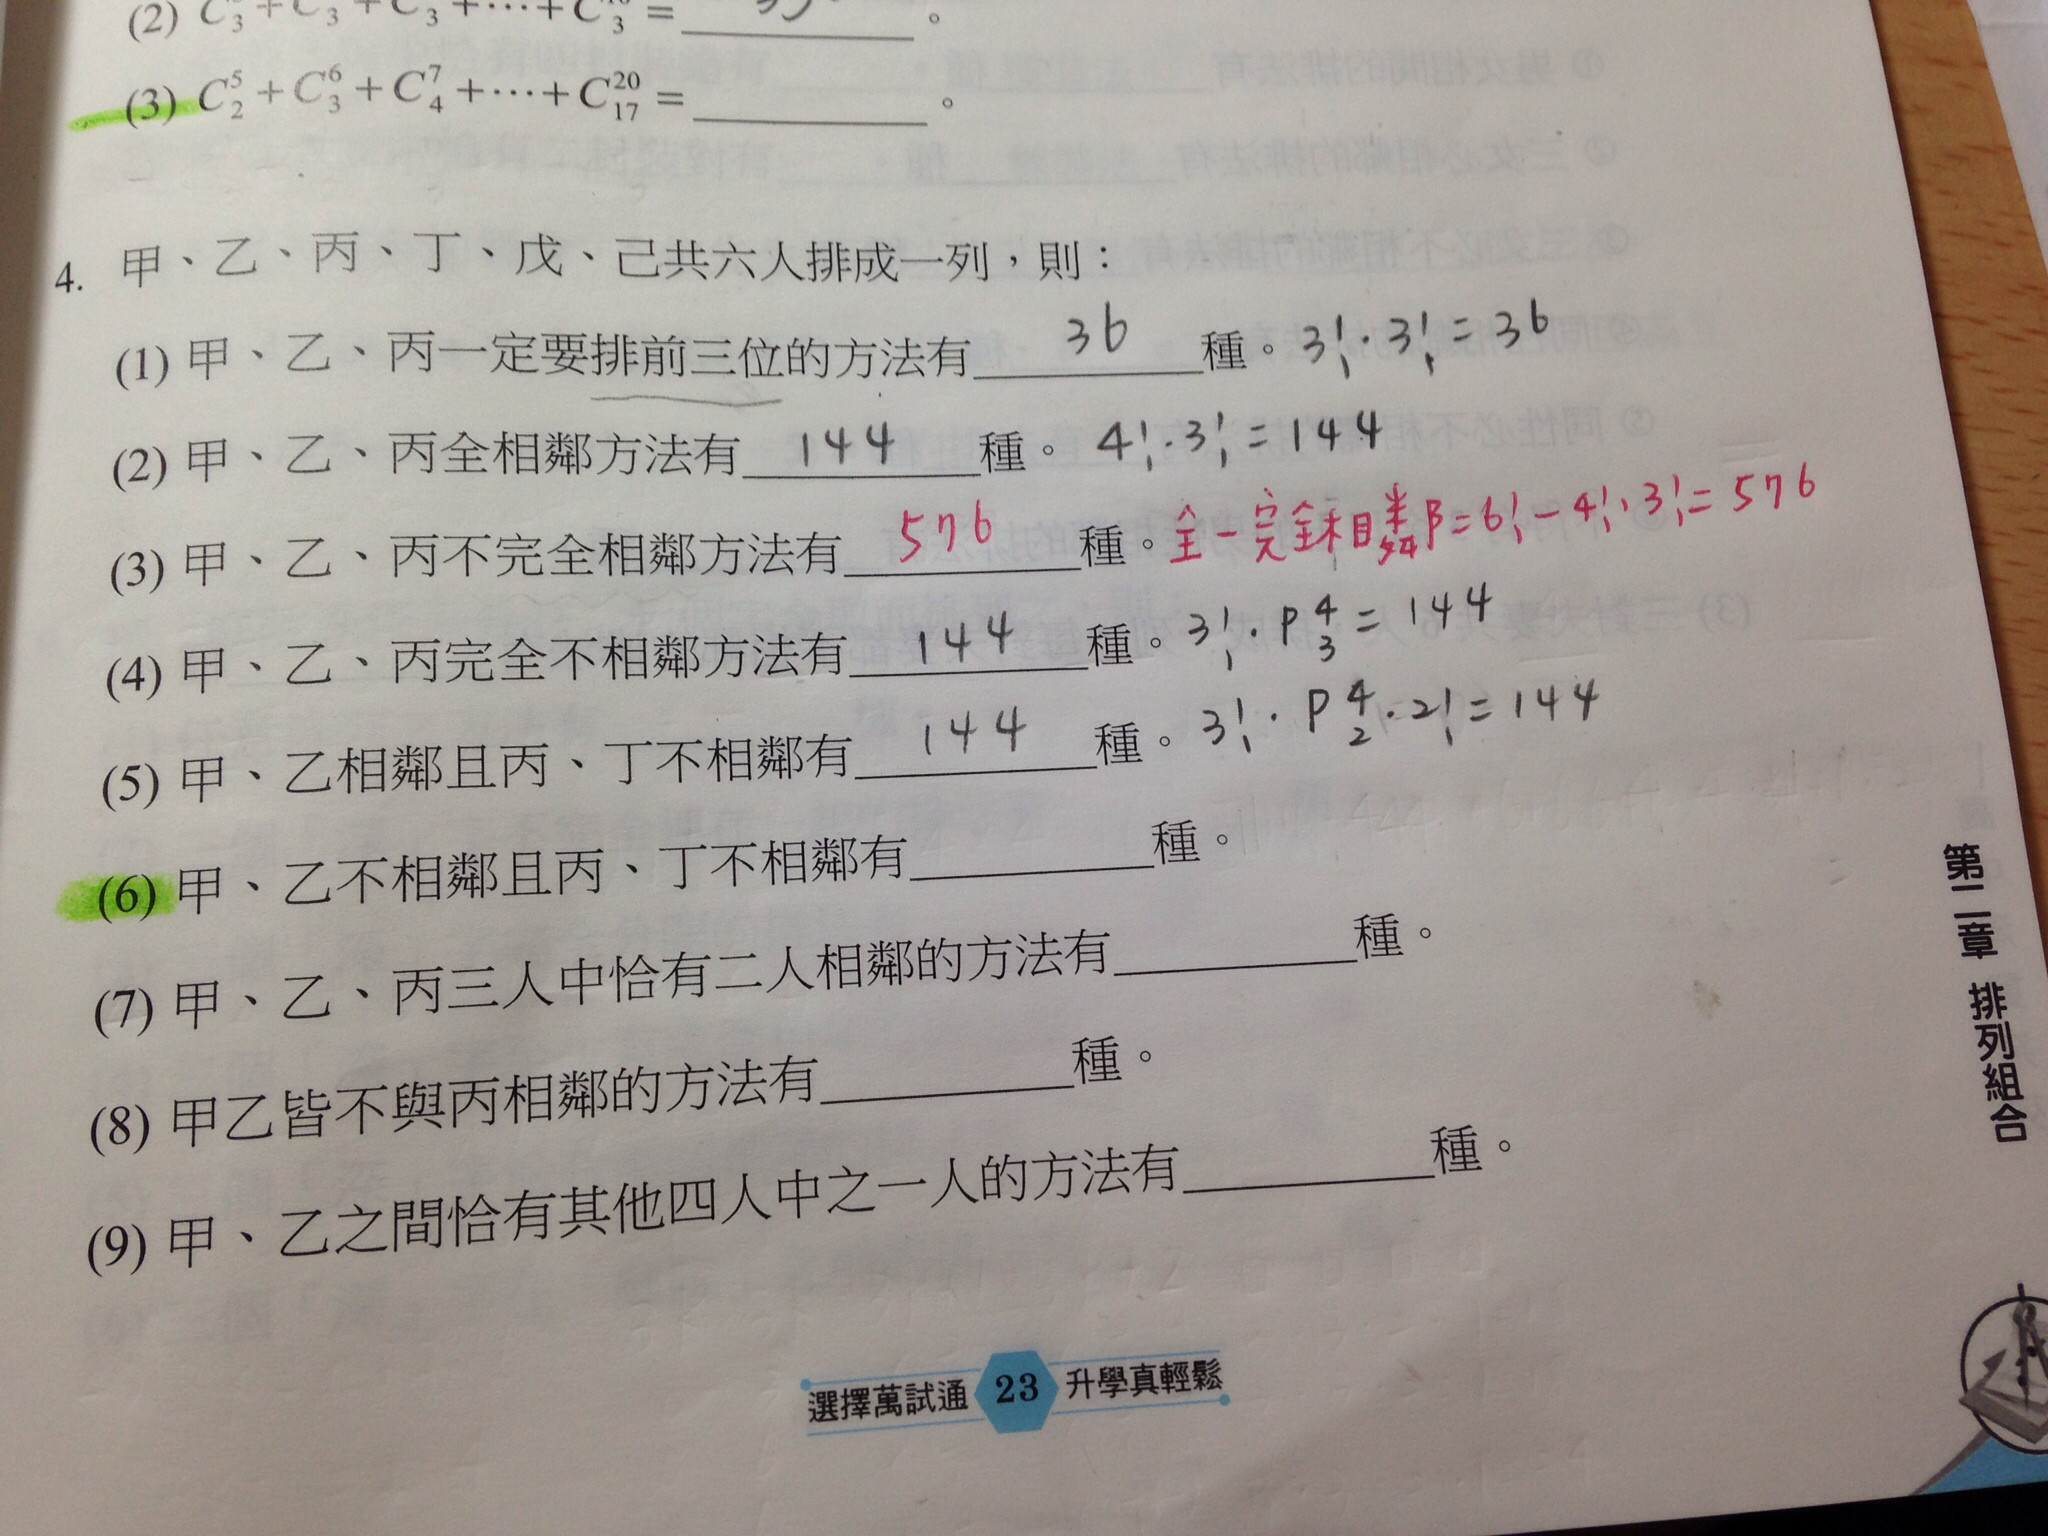 (2) C₃ + C₃ + C₃ + ⋯ + C₃ = ________。
(3) C₂⁵ + C₃⁶ + C₄⁷ + ⋯ + C₁₇²⁰ = ________。
4. 甲、乙、丙、丁、戊、己共六人排成一列，則：
(1) 甲、乙、丙一定要排前三位的方法有 36 種。3!·3! = 36
(2) 甲、乙、丙全相鄰方法有 144 種。4!·3! = 144
(3) 甲、乙、丙不完全相鄰方法有 576 種。全－完全相鄰 = 6! − 4!·3! = 576
(4) 甲、乙、丙完全不相鄰方法有 144 種。3!·P₃⁴ = 144
(5) 甲、乙相鄰且丙、丁不相鄰有 144 種。3!·P₂⁴·2! = 144
(6) 甲、乙不相鄰且丙、丁不相鄰有________種。
(7) 甲、乙、丙三人中恰有二人相鄰的方法有________種。
(8) 甲乙皆不與丙相鄰的方法有________種。
(9) 甲、乙之間恰有其他四人中之一人的方法有________種。
第二章 排列組合
選擇萬試通 23 升學真輕鬆